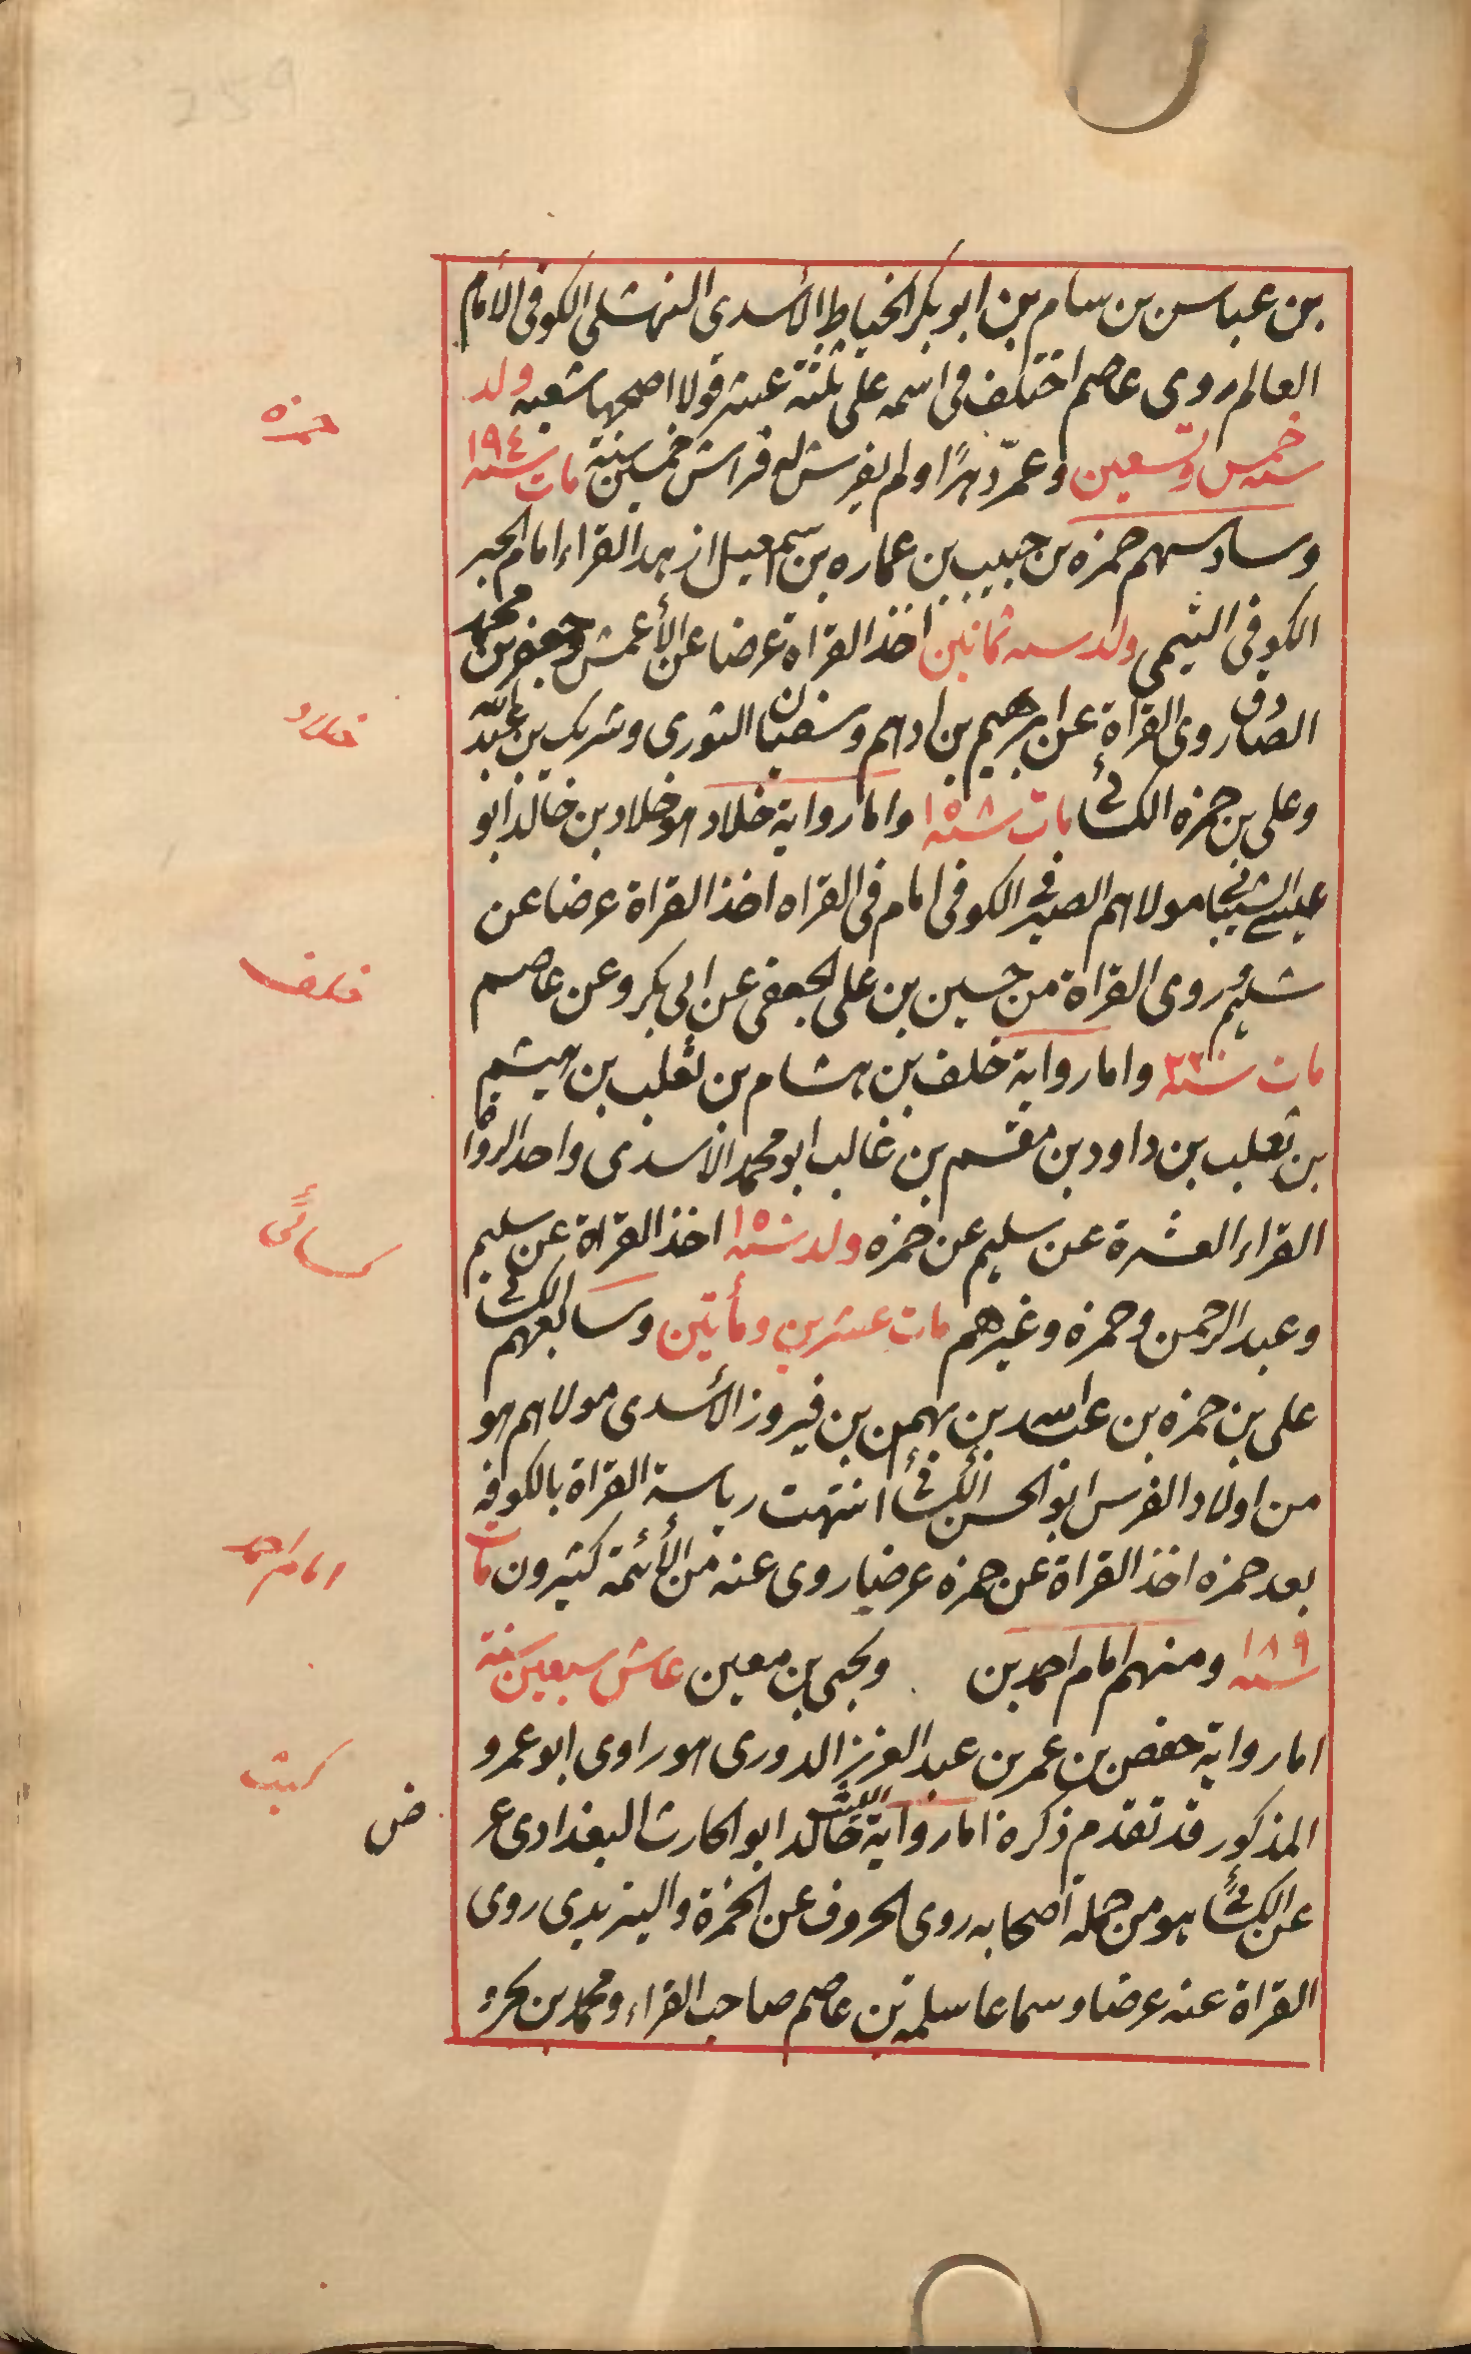 بن عباس بن سام بن ابو بكر الخياط الأسدى النهشلى الكوفى الامام
العالم روى عاصم اختلف فى اسمه على ثلثة عشر قولا اصحها شعبه ولد
سنه خمس وتسعين وعمّر دهرًا ولم يفرش له فراش خمسين سنة مات سنه ١٩٤
حمزه
وسادسهم حمزه بن حبيب بن عماره بن اسمعيل ازهد القراء امام الحبر
الكوفى التيمى ولد سنه ثمانين اخذ القراة عرضا عن الأعمش وجعفر بن محمد
الصادق روى القراة عن ابرهيم بن ادهم وسفيان الثورى وشريك بن عبد الله
خلاد
وعلى بن حمزه الكسائى مات سنه ١٥٨ واما رواية خلاد هو خلاد بن خالد ابو
عيسى الشيبانى مولاهم الصيرفى الكوفى امام فى القراه اخذ القراة عرضا عن
سليم روى القراة من حسين بن على الجعفى عن ابى بكر وعن عاصم
خلف
مات سنه ٢٢٠ واما رواية خلف بن هشام بن ثعلب بن هيثم
بن ثعلب بن داود بن مقسم بن غالب ابو محمد الاسدى واحد الرواة
القراء العشرة عن سليم عن حمزه ولد سنه ١٥٠ اخذ القراة عن سليم
كسائى
وعبد الرحمن وحمزه وغيرهم مات عشرين ومأتين وسابعهم الكسائى
على بن حمزه بن عبد الله بن بهمن بن فيروز الأسدى مولاهم هو
من اولاد الفرس ابو الحسن الكسائى انتهت رياسة القراة بالكوفه
بعد حمزه اخذ القراة عن حمزه عرضا روى عنه من الأئمة كثيرون مات
امام احمد
سنه ١٨٩ ومنهم امام احمد بن ويحيى بن معين عاش سبعين سنة
اما رواية حفص بن عمر بن عبد العزيز الدورى هو راوى ابو عمرو
ليث
المذكور قد تقدم ذكره اما رواية الليث خالد ابو الحارث البغدادى عر
ض
عن الكسائى هو من جمله اصحابه روى الحروف عن الحمزة واليزيدى روى
القراة عنه عرضا وسماعا سلمه بن عاصم صاحب الفراء ومحمد بن